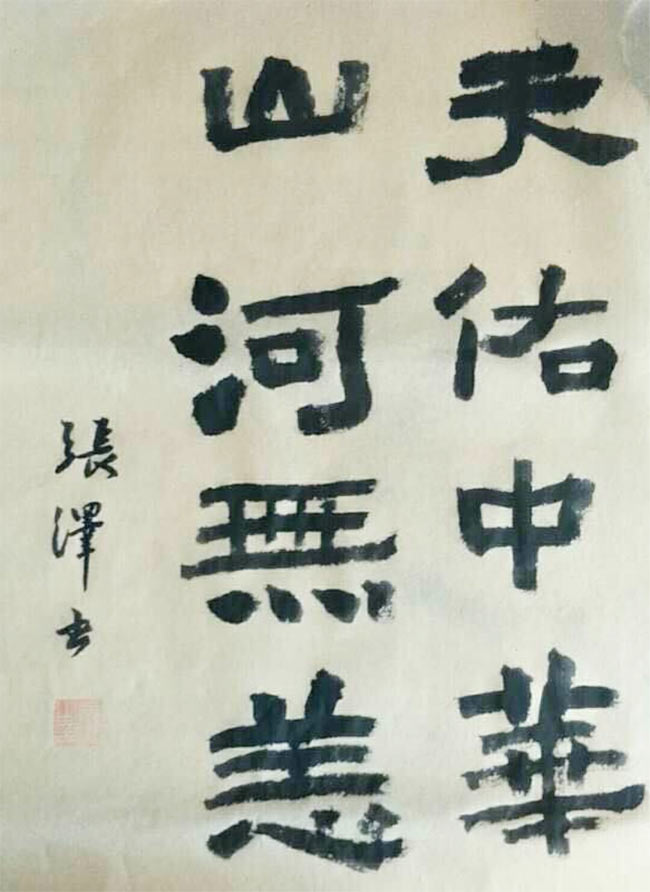 天佑中華
山河無恙
張澤书